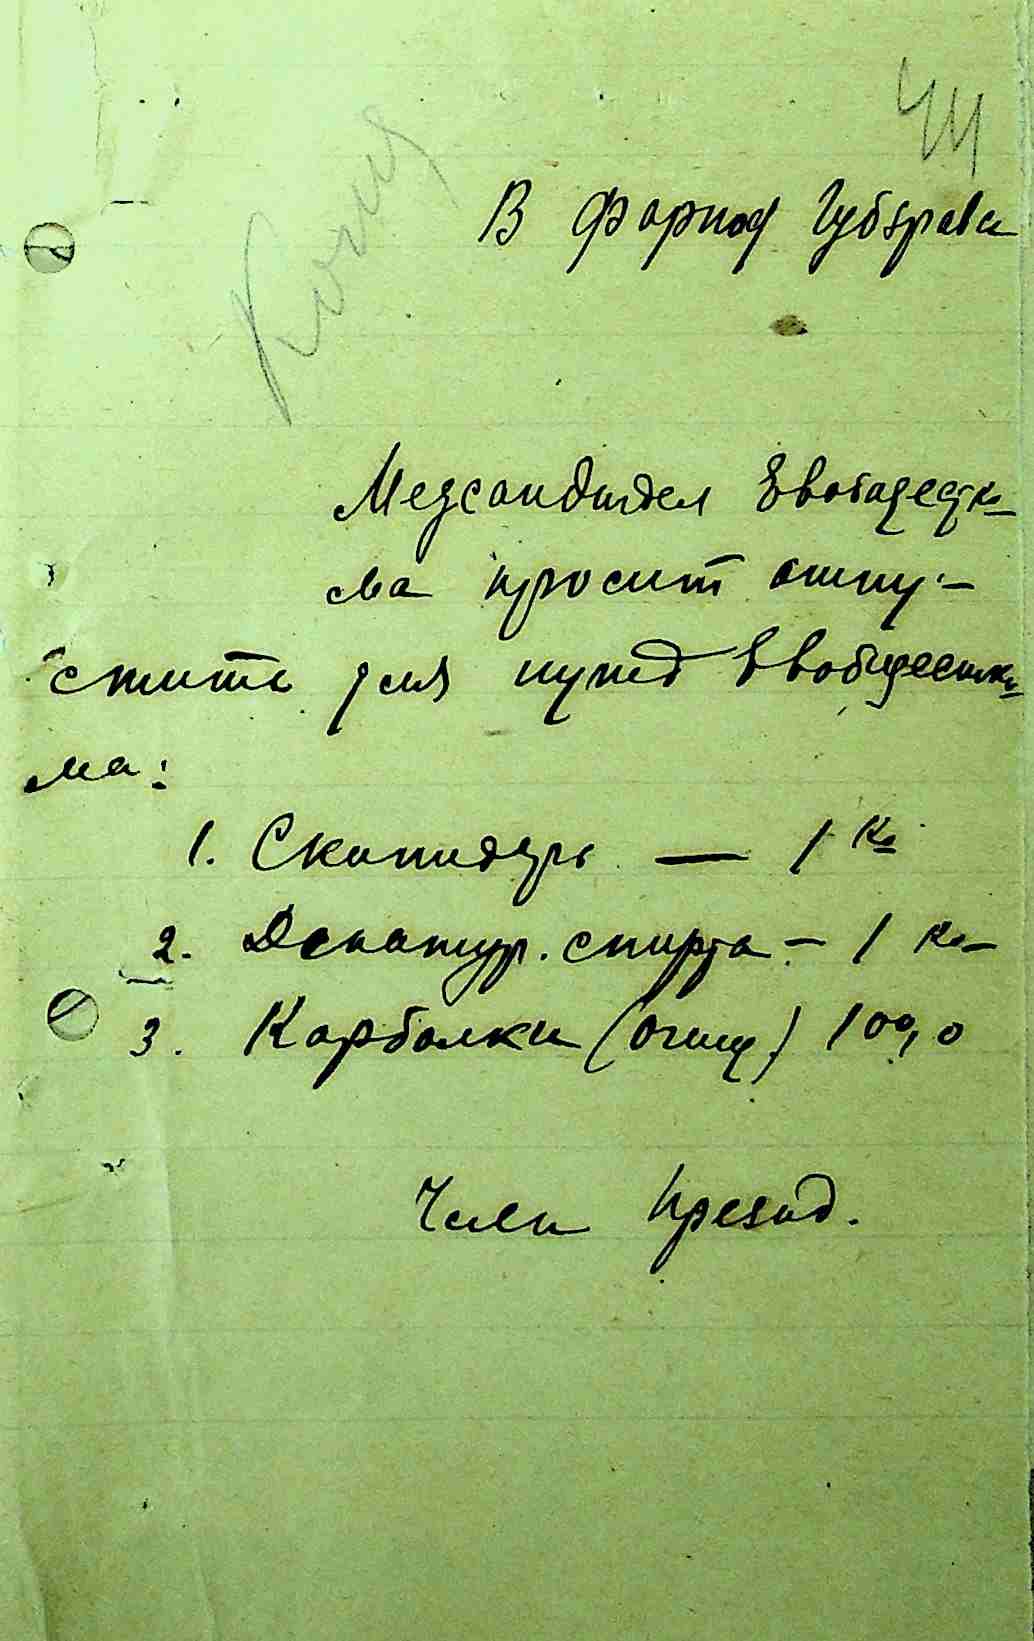 44
Копия
В Фарпод Губздрава
Медсандтдел Евобщестко
ма просит отпу-
стить для нужд Евобщестко
ма:
1. Скипидару — 1 Ко
2. Денатур. спирта — 1 Ко
3. Карболки (очищ) 100,0
Член Презид.